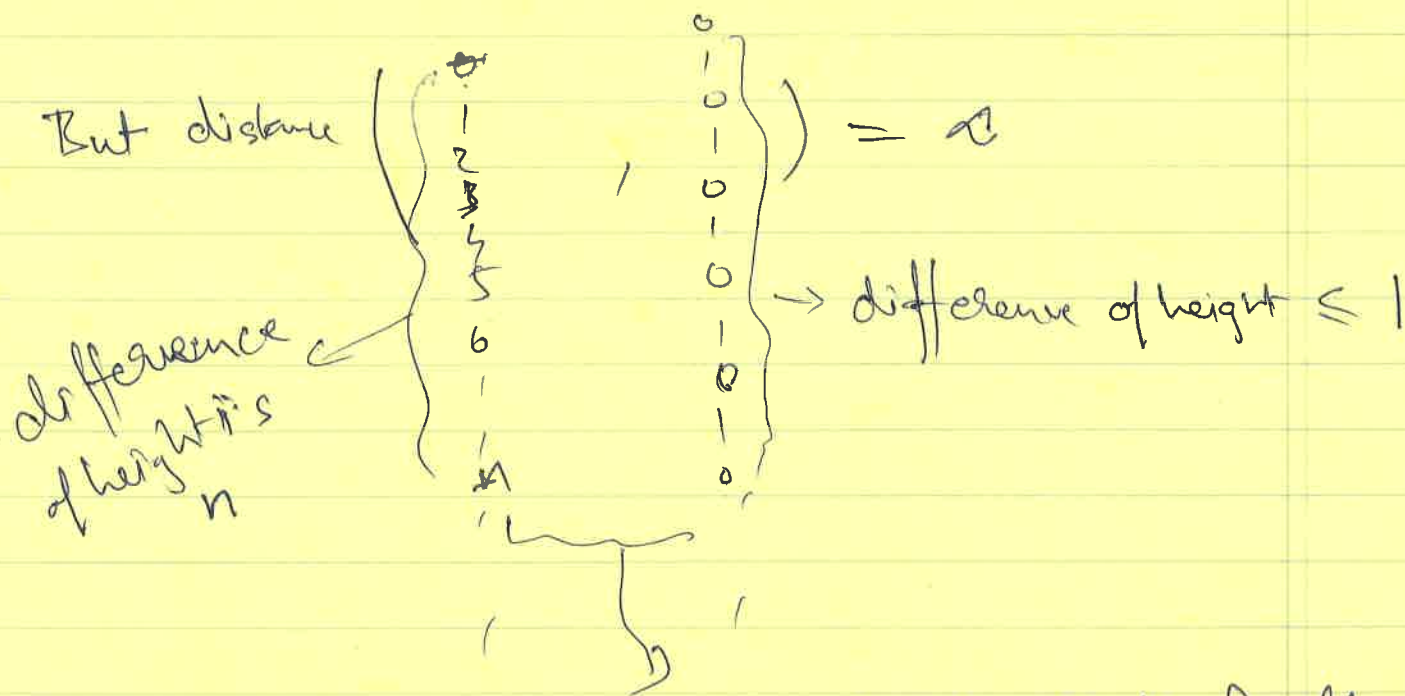 But distance ( 0 1 2 3 4 5 6 ' ' n ' , 0 1 0 1 0 1 0 1 0 1 0 ' ) = ∞
→ difference of height ≤ 1
difference
of height is
n